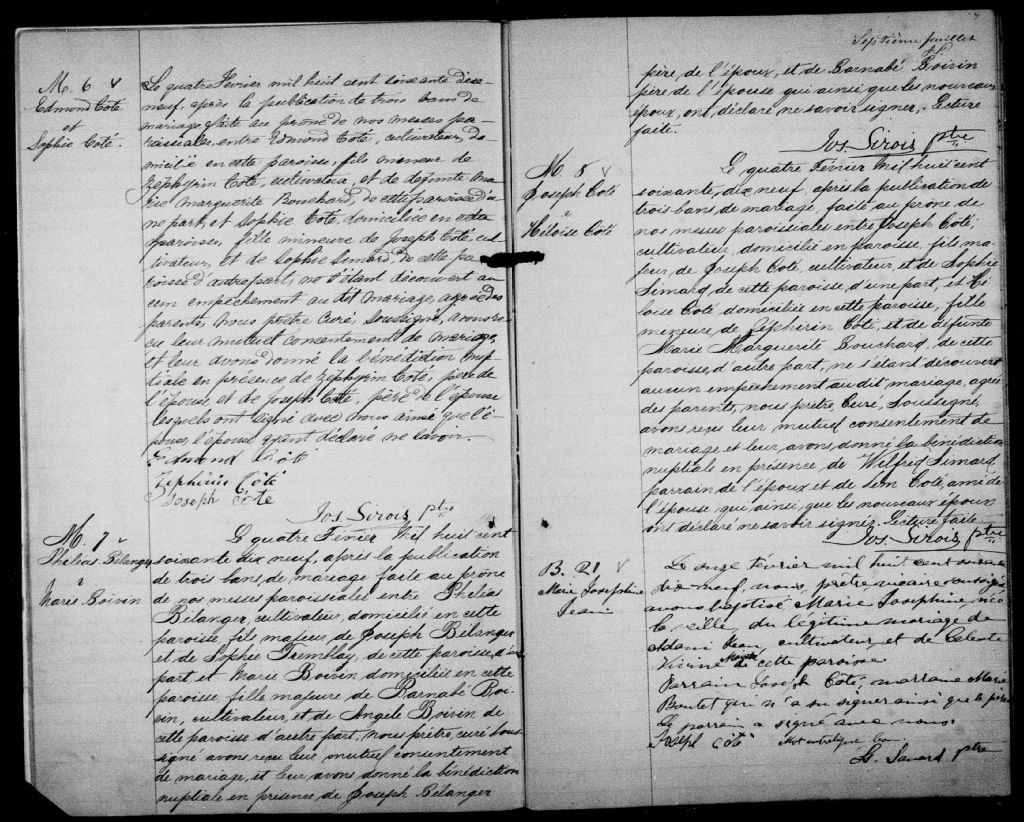 M. 6
Edmond Coté
et
Sophie Coté.
Le quatre Février mil huit cent soixante dix
neuf, après la publication de trois bans de
mariage faite au prône de nos messes pa-
roissiales, entre Edmond Coté, cultivateur, do-
micilié en cette paroisse, fils mineur de
Zéphyrin Coté, cultivateur, et de defunte Ma-
rie Marguerite Bouchard, de cette paroisse d'u-
ne part, et Sophie Coté, domiciliée en cette
paroisse, fille mineure de Joseph Coté, cul-
tivateur, et de Sophie Simard, de cette pa-
roisse d'autre part, ne s'étant découvert au-
cun empêchement au dit mariage, agréé des
parents, nous prêtre Curé, soussigné, avons re-
cu leur mutuel consentement de mariage,
et leur avons donné la bénédiction nup-
tiale en présence de Zéphyrin Coté, père de
l'épouse et de Joseph Coté, père de l'épouse
lesquels ont signé avec nous ainsi que l'é-
poux, l'épouse ayant déclaré ne savoir.
Edmond Côté
Zephirin Côté
Joseph Côté
Jos Sirois ptre
M. 7
Philéas Bélanger
&
Marie Boivin
Le quatre Février Mil huit cent
soixante dix neuf, après la publication
de trois bans de mariage faite au prône
de nos messes paroissiales entre Philéas
Bélanger, cultivateur, domicilié en cette
paroisse, fils majeur de Joseph Bélanger
et de Sophie Tremblay, de cette paroisse d'une
part et Marie Boivin domiciliée en cette
paroisse, fille majeure de Barnabé Boi-
vin, cultivateur, et de Angele Boivin de
cette paroisse d'autre part, nous prêtre, curé sous-
signé avons reçu leur mutuel consentement
de mariage, et leur avons donné la bénédiction
nuptiale en présence de Joseph Bélanger
Septième feuillet
père de l'époux, et de Barnabé Boivin
père de l'épouse qui ainsi que les nouveaux
époux, ont déclaré ne savoir signer. Lecture
faite.
Jos Sirois ptre
M. 8
Joseph Coté
&
Héloïse Coté
Le quatre Février Mil huit cent
soixante, dix neuf, après la publication de
trois bans de mariage, faite au prône de
nos messes paroissiales entre Joseph Coté,
cultivateur, domicilié en paroisse, fils ma-
jeur, de Joseph Coté, cultivateur, et de Sophie
Simard, de cette paroisse, d'une part, et Hé-
loise Coté domiciliée en cette paroisse, fille
mineure, de Zépherin Coté, et de défunte
Marie Marguerite Bouchard, de cette
paroisse, d'autre part, ne s'étant découvert
aucun empêchement au dit mariage, agréé
des parents, nous prêtre, Curé, Soussigné,
avons reçu leur mutuel consentement de
mariage et leur, avons donné la bénédiction
nuptiale en présence de Wilfrid Simard
parrain de l'époux et de Coté, ami de
l'épouse qui, ainsi, que les nouveaux époux
ont déclaré ne savoir signer. Lecture faite
Jos. Sirois ptre
B. 21
Marie Josephine
Jean
Le onze février mil huit cent soixante
dix neuf, nous, prêtre, vicaire soussigné
avons baptisé Marie Josephine, née
la veille, du légitime mariage de
Adam Jean, cultivateur et de Celeste
de cette paroisse
Parrain Joseph Côté, marraine Marie
Boulet qui n'a su signer ainsi que le père
Le parrain a signé avec nous.
Joseph Côté
Savard ptre